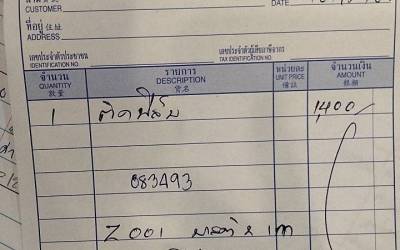 CUSTOMER
ที่อยู่ 住址
ADDRESS
เลขประจำตัวประชาชน เลขประจำตัวผู้เสียภาษีอากร
IDENTIFICATION NO. TAX IDENTIFICATION NO.
จำนวน รายการ หน่วยละ จำนวนเงิน
QUANTITY DESCRIPTION UNIT PRICE AMOUNT
數量 貨名 價錢 銀額
1 ติดฟิล์ม 1,400/
083493
2001